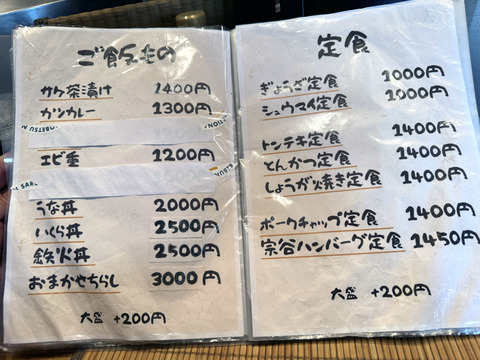 ご飯もの
サケ茶漬け 1400円
カツカレー 1300円
エビ重 1200円
うな丼 2000円
いくら丼 2500円
鉄火丼 2500円
おまかせちらし 3000円
大盛 +200円
定食
ぎょうざ定食 1000円
シュウマイ定食 1000円
トンテキ定食 1400円
とんかつ定食 1400円
しょうが焼き定食 1400円
ポークチャップ定食 1400円
宗谷ハンバーグ定食 1450円
大盛 +200円